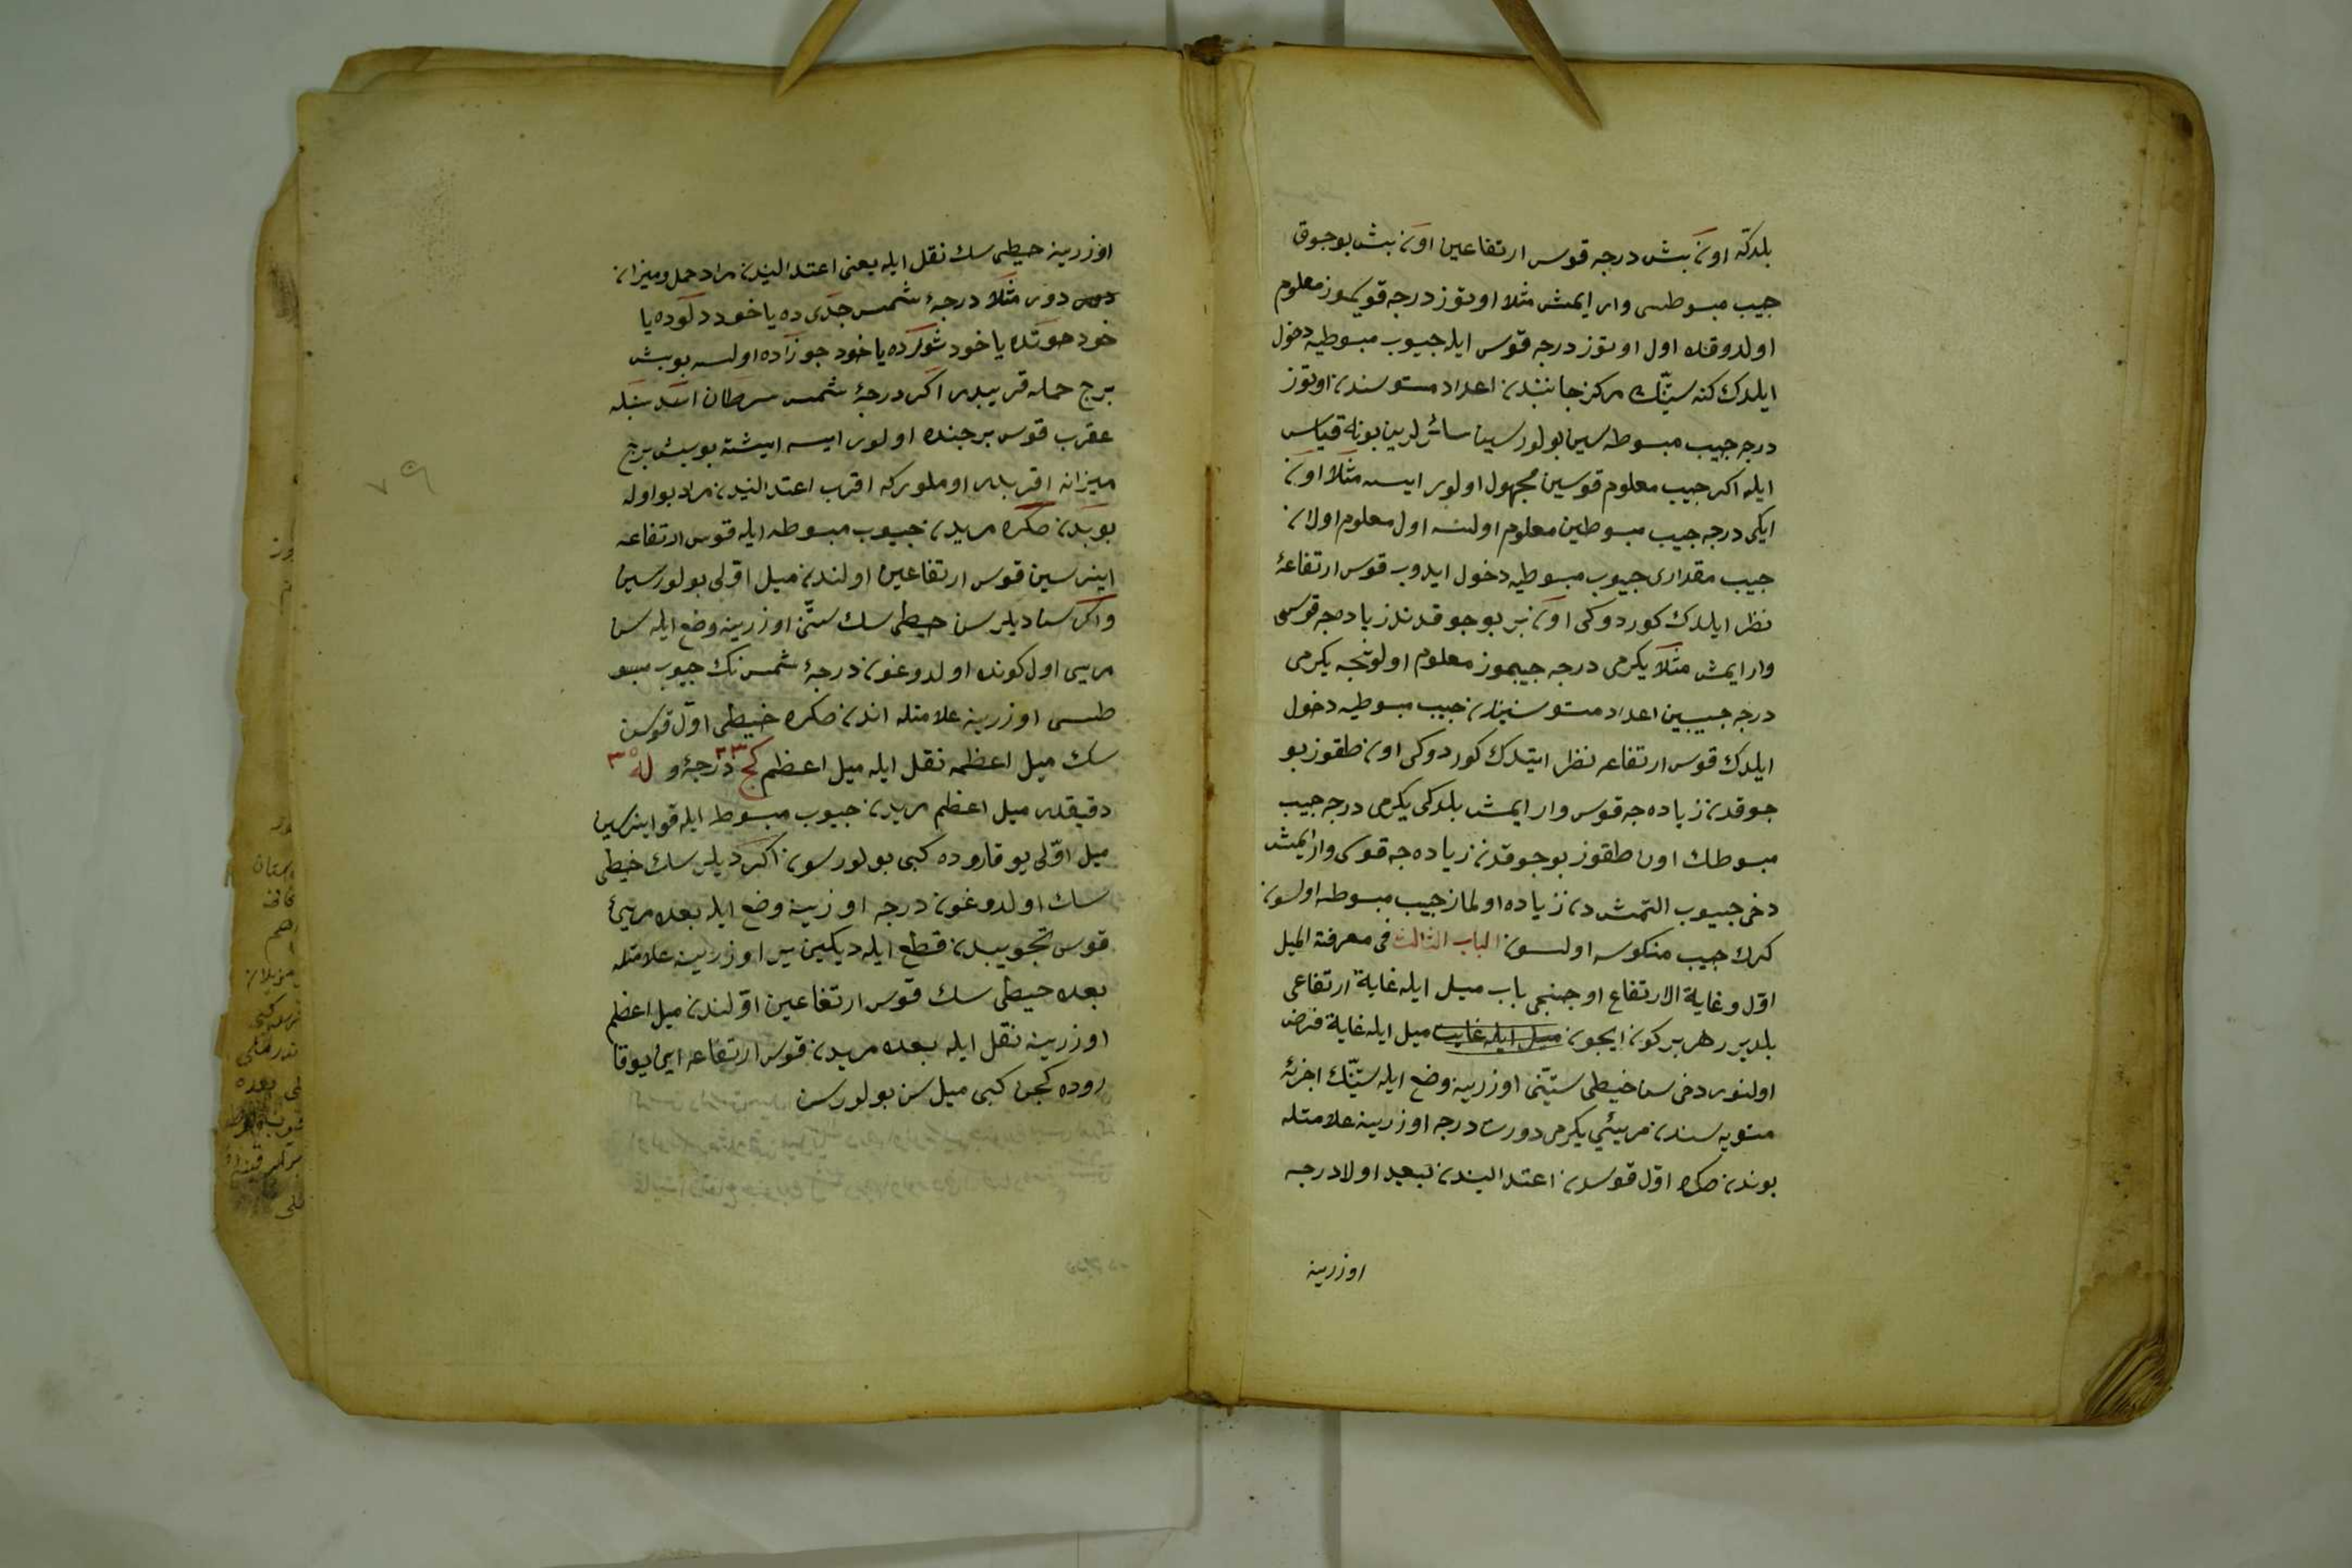 بلدكه اون بش درجه قوس ارتفاعين اون بش بوجوق
جيب مبسوطسى وار ايمش مثلا اوتوز درجه قوسموز معلوم
اولدوقده اول اوتوز درجه قوس ايله جيوب مبسوطيه دخول
ايلدك كنه ستينك مركز جانبندن اعداد مستوسندن اوتوز
درجه جيب مبسوطه سين بولورسين سائرلرين بوناه قياس
ايله اكر جيب معلوم قوسين مجهول اولور ايسه مثلا اون
ايكى درجه جيب مبسوطين معلوم اولسه اول معلوم اولان
جيب مقدارى جيوب مبسوطيه دخول ايدوب قوس ارتفاعه
نظر ايلدك كوردوكى اون بر بوجوقدن زياده جه قوسى
وار ايمش مثلا يكرمى درجه جيبموز معلوم اولونجه يكرمى
درجه جيبين اعداد مستوسيندن جيب مبسوطيه دخول
ايلدك قوس ارتفاعه نظر ايتدك كوردوكى اون طقوز بو
جوقدن زياده جه قوس وار ايمش بلدكى يكرمى درجه جيب
مبسوطك اون طقوز بوجوقدن زياده جه قوسى وار ايمش
دخى جيوب التمشدن زياده اولماز جيب مبسوطه اولسون
كرك جيب منكوسه اولسون الباب الثالث فى معرفة الميل
اول وغاية الارتفاع اوجنجى باب ميل ايله غاية ارتفاعى
بلديرر هر بر كون ايجون ميل ايله غايت ميل ايله غاية فرض
اولنور دخى سن خيطى ستينى اوزرينه وضع ايله ستينك اجزئه
مستويه سندن مريئى يكرمى دورت درجه اوزرينه علامتله
بوندن صكره اول قوسدن اعتداليندن تبعيد اولا درجه
اوزرينه
اوزرينه خيطى سك نقل ايله يعنى اعتداليندن مراد حمل وميزان
دور مثلا درجۀ شمس جدى ده يا خود دلوده يا
خود حوتده يا خود ثورده يا خود جوزاده اولسه بو بش
برج حمله قريبدر اكر درجۀ شمس سرطان اسد سنبله
عقرب قوس برجنده اولور ايسه ايشته بو بش برج
ميزانه اقربدر اوملوركه اقرب اعتداليندن مراد بو اوله
بوندن صكره مريدن جيوب مبسوطه ايله قوس ارتفاعه
اينرسين قوس ارتفاعين اولندن ميل اولى بولورسين
واكر سن ديلرسن خيطى سك ستين اوزرينه وضع ايله سن
مريى اول كونده اولدوغون درجۀ شمس نك جيوب مبسو
طسى اوزرينه علامتله اندن صكره خيطى اول قوسن
سك ميل اعظمه نقل ايله ميل اعظم كج ٢٣ درجۀ و له ٣٥
دقيقه در ميل اعظم مريدن جيوب مبسوط ايله قو اينرسين
ميل اولى يوقاروده كبى بولورسون اكر ديلرسك خيطى
سك اولدوغون درجه اوزرينه وضع ايله بعده مريئ
قوس تجويبدن قطع ايله ديكين ير اوزرينه علامتله
بعده خيطى سك قوس ارتفاعين اولندن ميل اعظم
اوزرينه نقل ايله بعده مريدن قوس ارتفاعه اين يوقا
روده كجن كبى ميل سن بولورسن